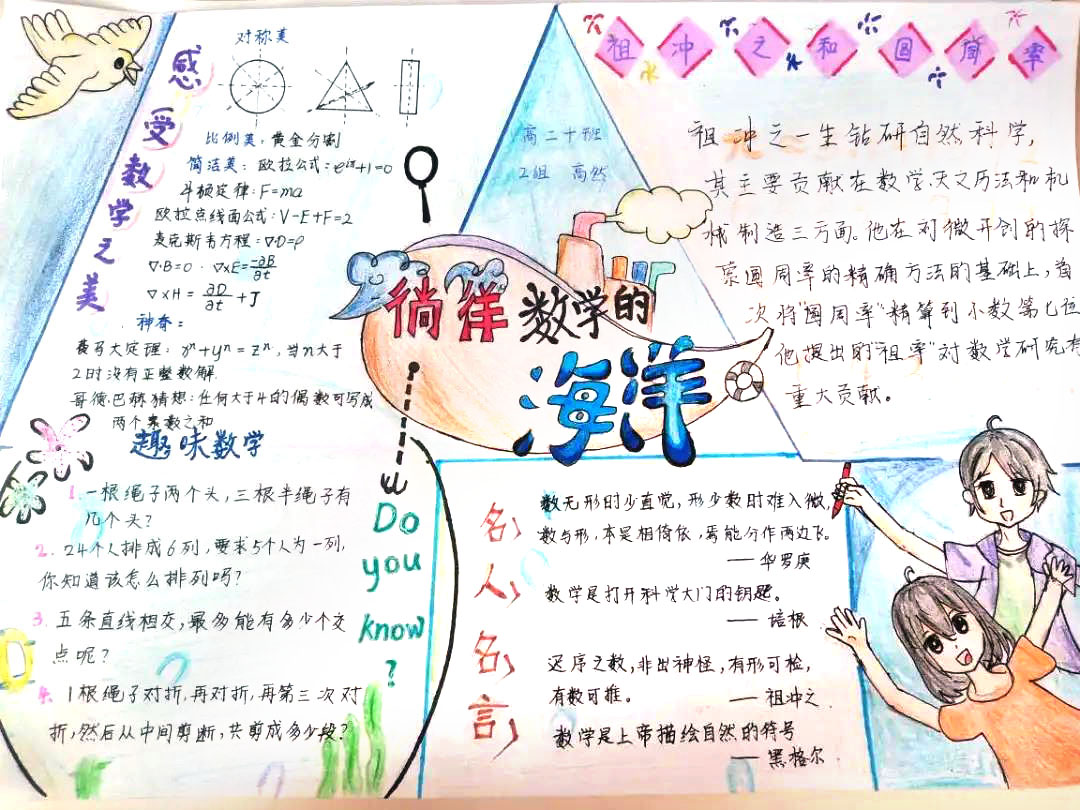 感受数学之美
对称美
比例美：黄金分割
简洁美：欧拉公式：e^{iπ}+1=0
牛顿定律：F=ma
欧拉点线面公式：V-E+F=2
麦克斯韦方程：∇·D=ρ
∇·B=0 · ∇×E=-∂B/∂t
∇×H=∂D/∂t+J
神奇：
费马大定理：xⁿ+yⁿ=zⁿ，当n大于
2时没有正整数解.
哥德巴赫猜想：任何大于4的偶数可写成
两个素数之和
高二十班
2组 高然
徜徉数学的
海洋
祖冲之和圆周率
祖冲之一生钻研自然科学，
其主要贡献在数学、天文历法和机
械制造三方面。他在刘微开创的探
索圆周率的精确方法的基础上，首
次将"圆周率"精算到小数第七位
他提出的"祖率"对数学研究有
重大贡献。
趣味数学
1.一根绳子两个头，三根半绳子有
几个头？
2.24个人排成6列，要求5个人为一列，
你知道该怎么排列吗？
3.五条直线相交，最多能有多少个交
点呢？
4.1根绳子对折，再对折，再第三次对
折，然后从中间剪断，共剪成多少段？
Do
you
know
?
名人名言
数无形时少直觉，形少数时难入微，
数与形，本是相倚依，焉能分作两边飞。
——华罗庚
数学是打开科学大门的钥匙。
——培根
迟序之数，非出神怪，有形可检，
有数可推。 ——祖冲之
数学是上帝描绘自然的符号
——黑格尔